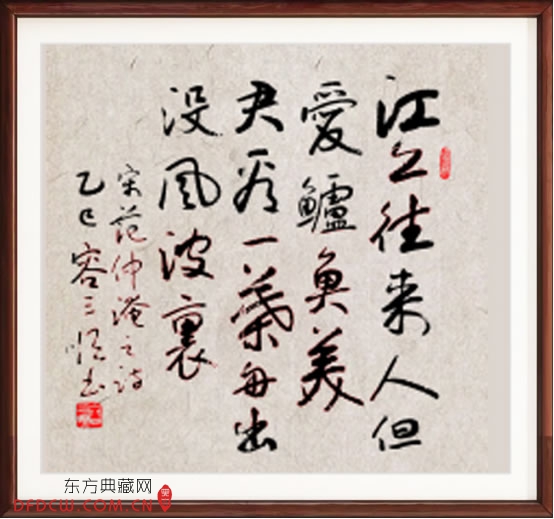 江上往来人但
愛鱸魚美
君看一葉舟出
没風波裏
宋范仲淹之诗
乙巳容三书
东方典藏网
DFDCW.COM.CN